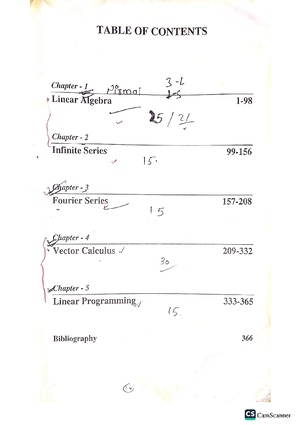 TABLE OF CONTENTS
Chapter - 1
3-L
Linear Algebra 1-98
25 / 21
Chapter - 2
Infinite Series 99-156
15.
Chapter - 3
Fourier Series 157-208
15
Chapter - 4
Vector Calculus 209-332
30
Chapter - 5
Linear Programming 333-365
15.
Bibliography 366
CS CamScanner